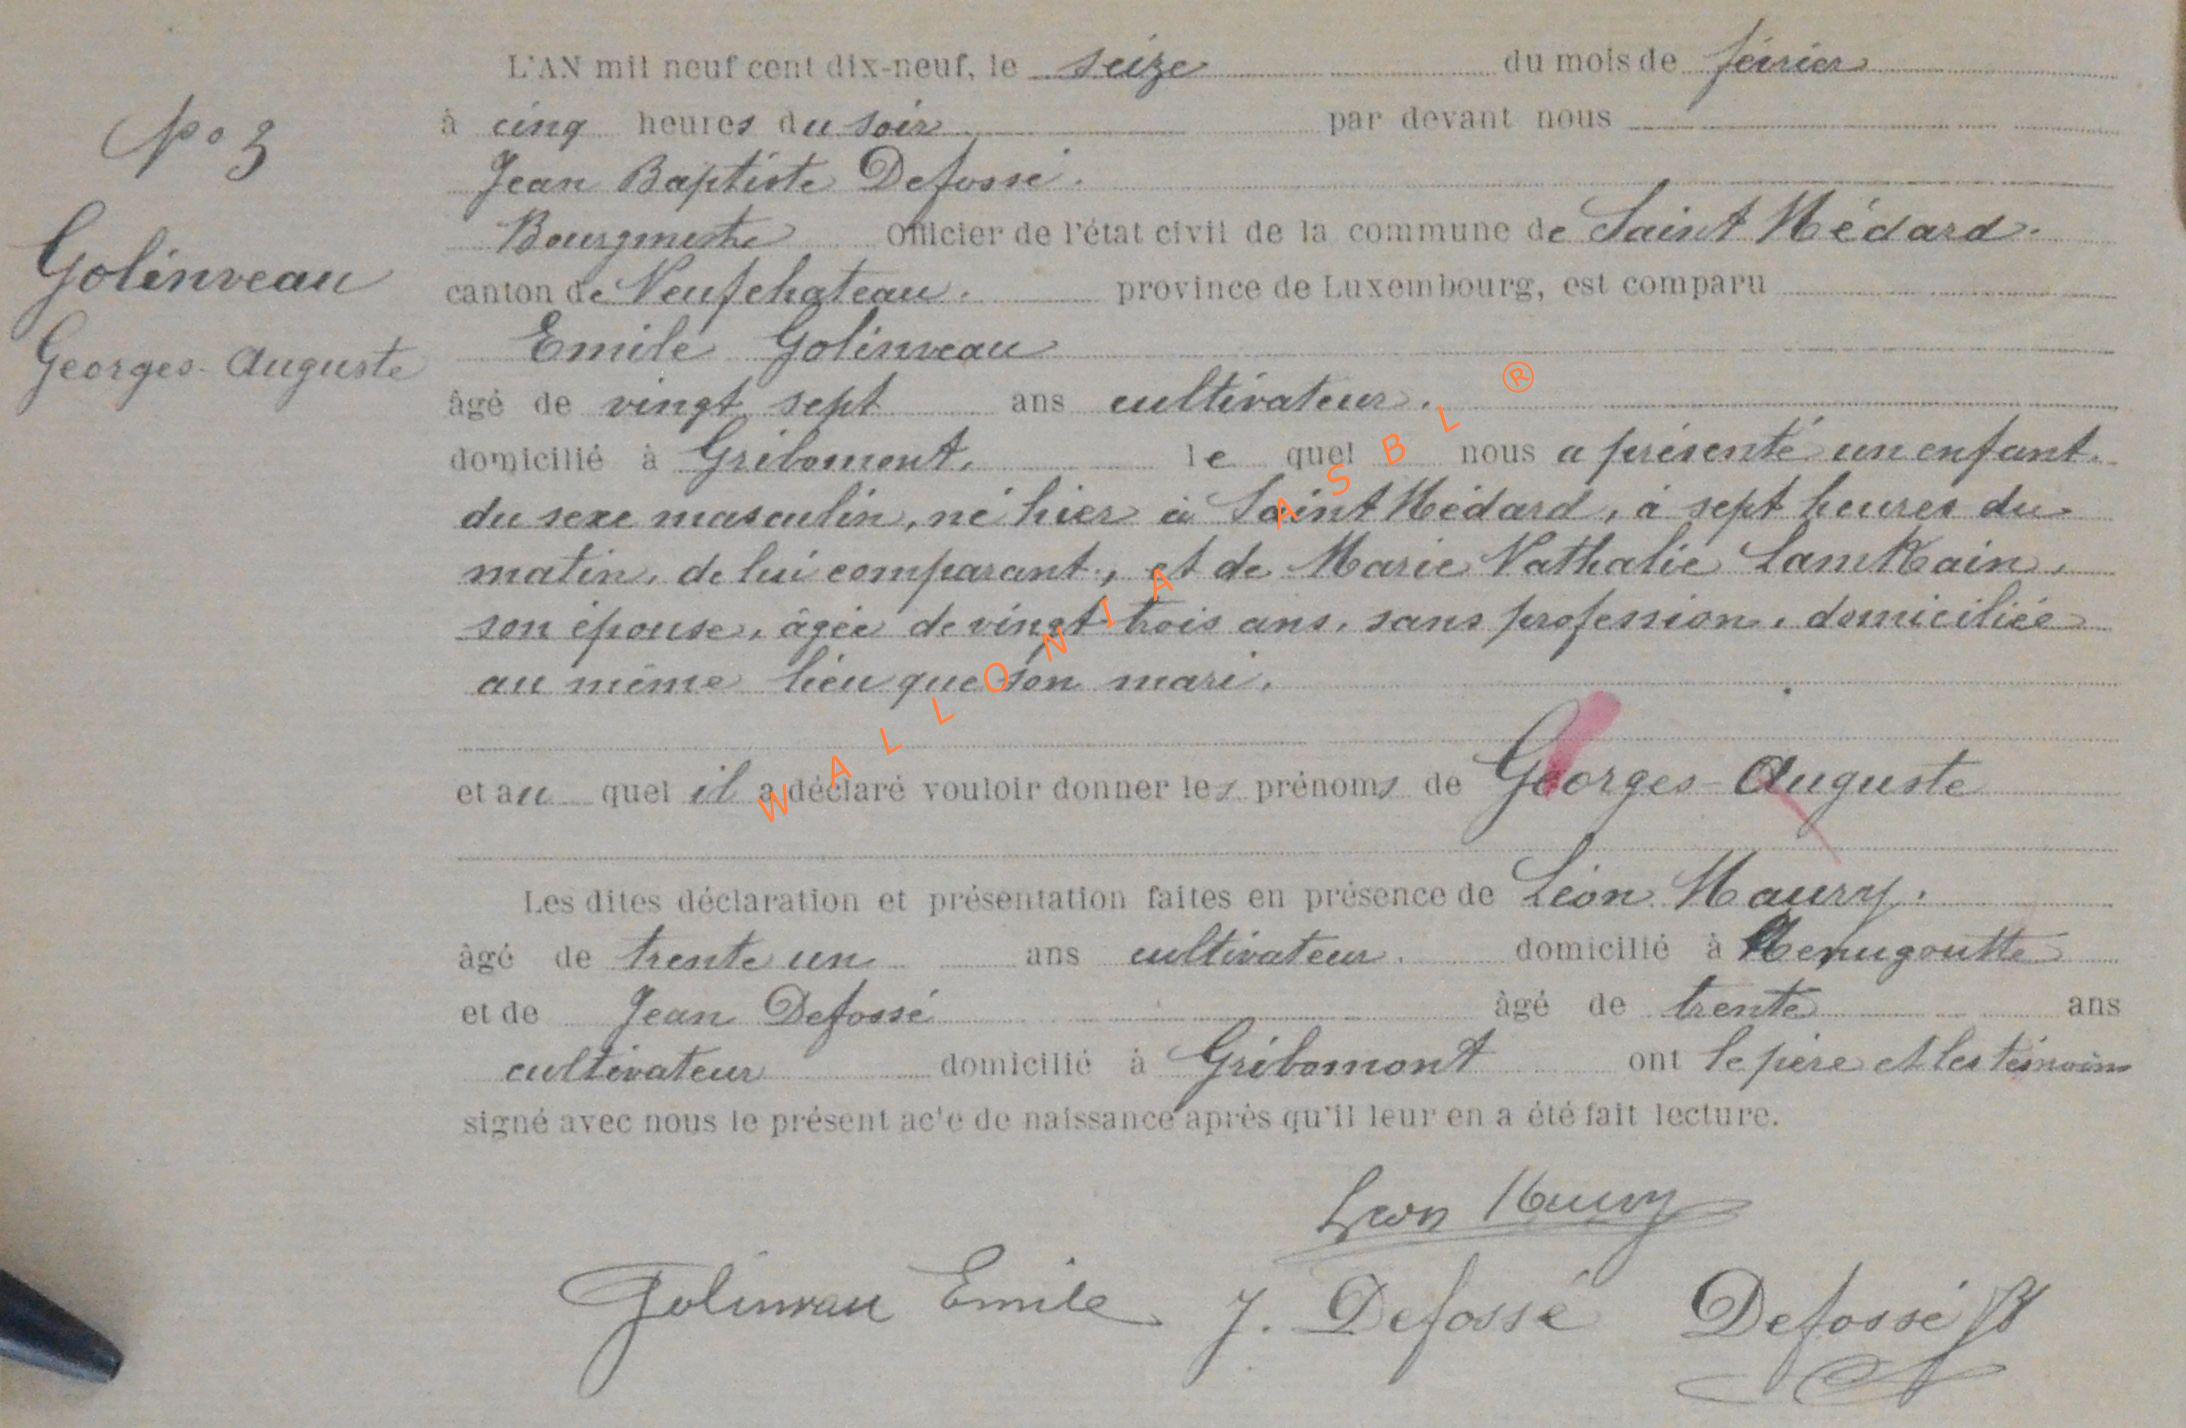 L'AN mil neuf cent dix-neuf, le seize du mois de février
à cinq heures du soir par devant nous
Jean Baptiste Defossé.
Bourgmestre Officier de l'état civil de la commune de Saint Médard.
canton de Neufchateau. province de Luxembourg, est comparu
Emile Golinveau
âgé de vingt sept ans cultivateur.
domicilié à Gribomont. le quel nous a présenté un enfant
du sexe masculin, né hier à Saint Médard, à sept heures du
matin, de lui comparant, et de Marie Nathalie Lamkain,
son épouse, âgée de vingt-trois ans, sans profession, domiciliée
au même lieu que son mari.
et au quel il a déclaré vouloir donner les prénoms de Georges-Auguste
Les dites déclaration et présentation faites en présence de Léon Maury.
âgé de trente un ans cultivateur. domicilié à Menugoutte
et de Jean Defossé âgé de trente ans
cultivateur domicilié à Gribomont ont le père et les témoins
signé avec nous le présent acte de naissance après qu'il leur en a été fait lecture.
No 3
Golinveau
Georges-Auguste
Leon Maury
Golinveau Emile J. Defossé Defossé JB
WALLONIA ASBL ®